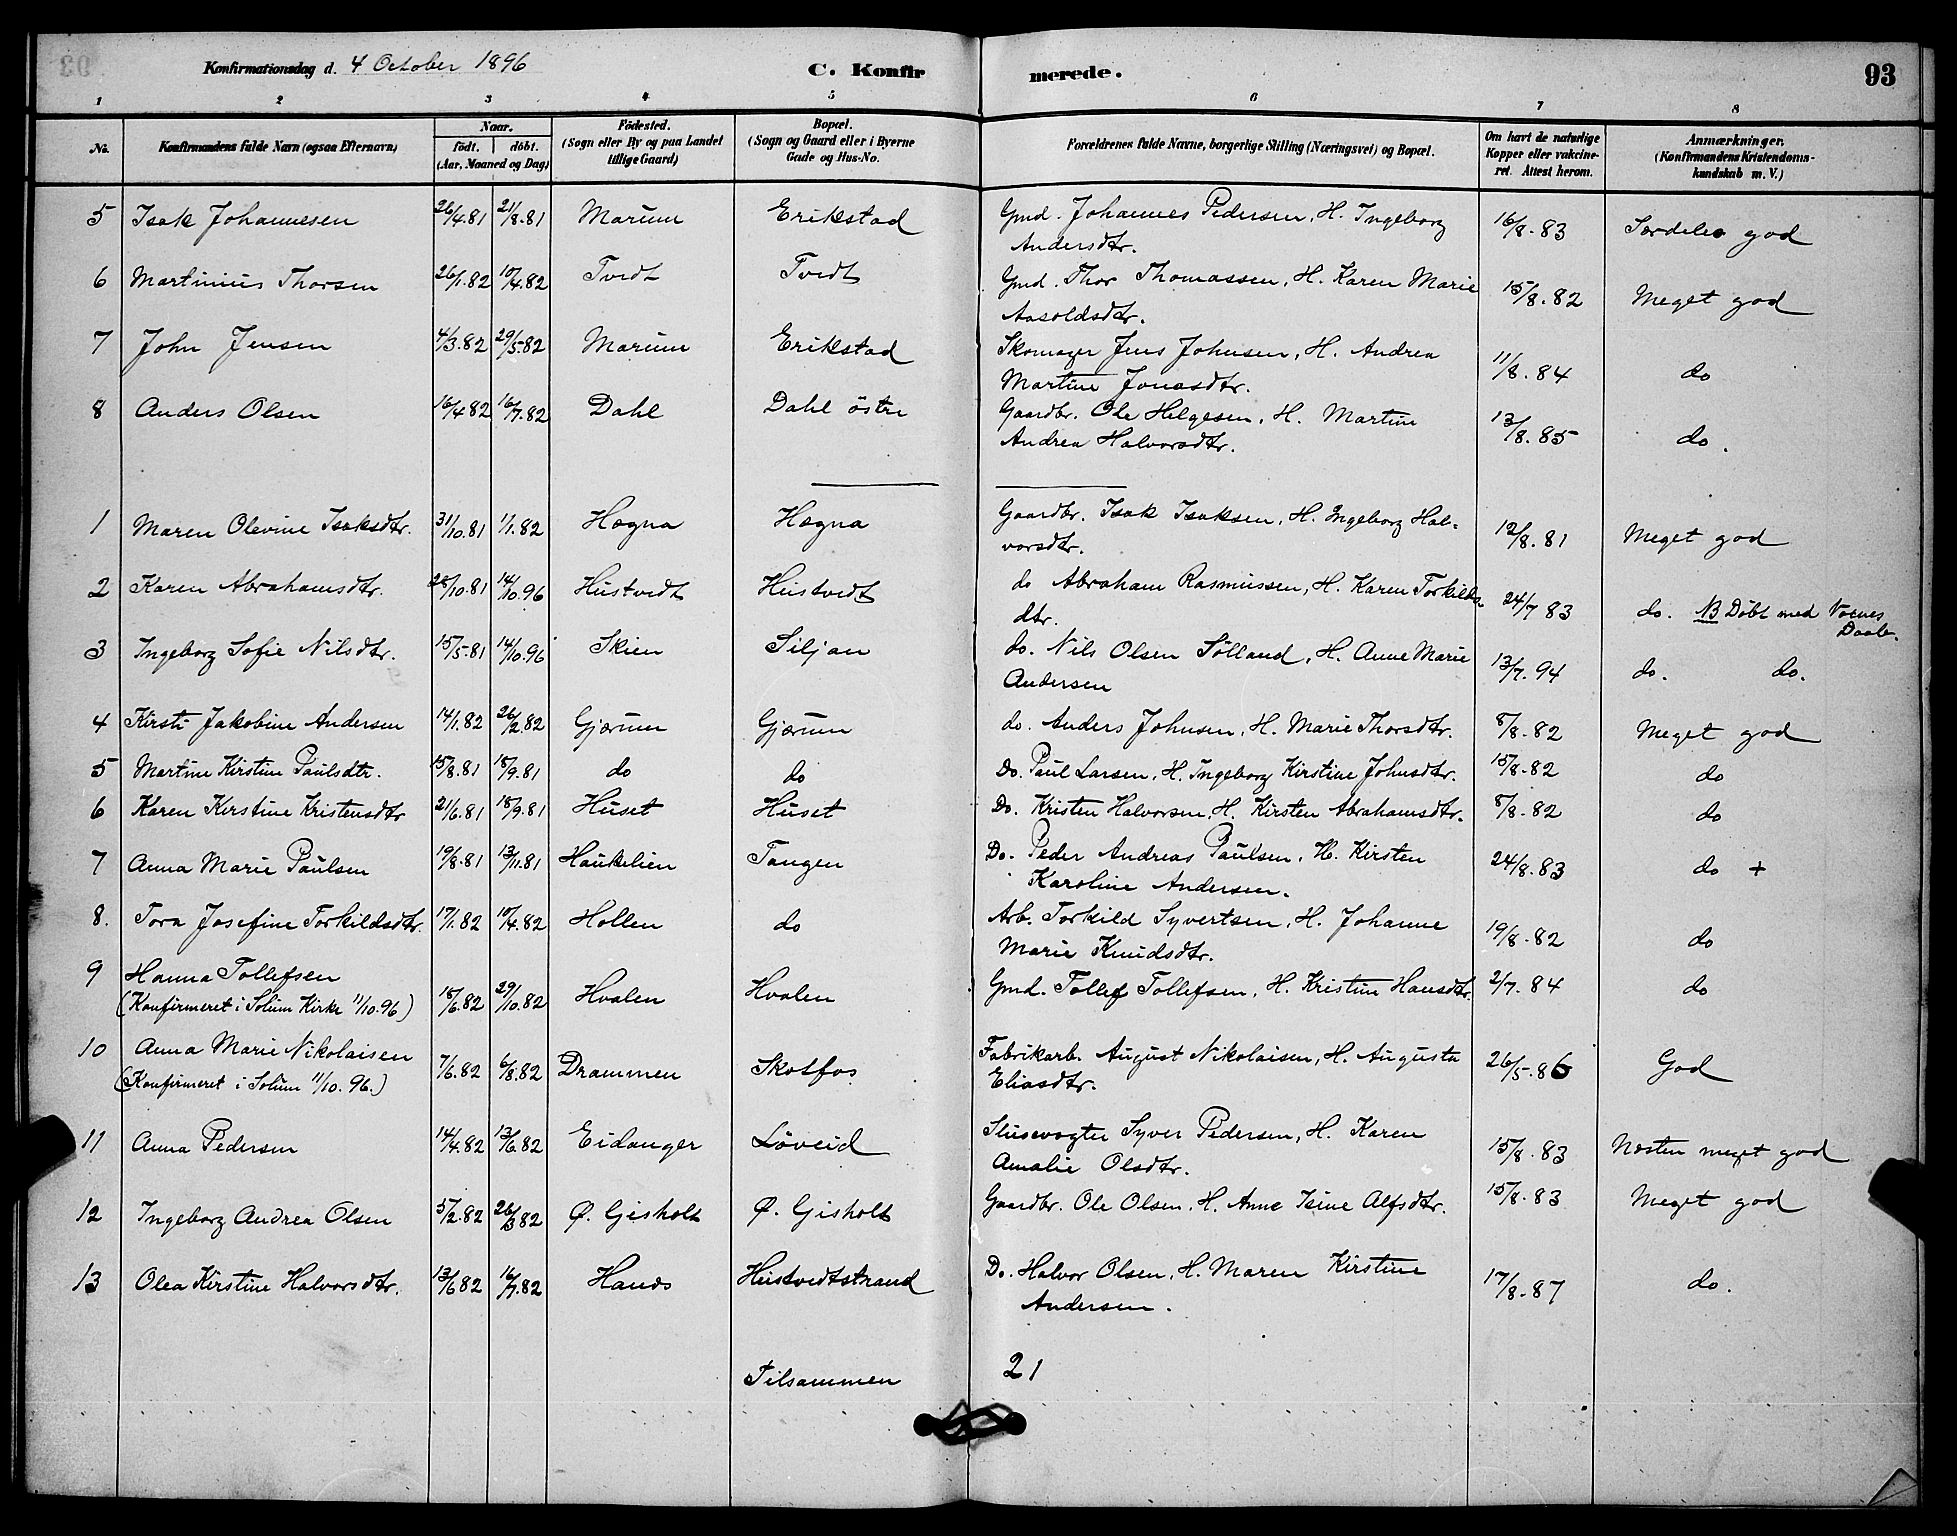 Konfirmationsdag d. 4 October 1896 C. Konfirmerede. 93
1 2 3 4 5 6 7 8
No. Konfirmandens fulde Navn (ogsaa Efternavn) Naar. födt. döbt. (Aar, Maaned og Dag) Födested. (Sogn eller By og paa Landet tillige Gaard) Bopæl. (Sogn og Gaard eller i Byerne Gade og Hus-No. Forældrenes fulde Navne, borgerlige Stilling (Næringsvei) og Bopæl. Om havt de naturlige Kopper eller vakcineret. Attest herom. Anmærkninger. (Konfirmandens Kristendomskundskab m. V.)
5 Isak Johannesen 26/4.81 21/8.81 Marum Erikstad Gmd. Johannes Pedersen, H. Ingeborg 16/8.83 Særdeles god
Andersdtr.
6 Martinius Thorsen 26/1.82 10/4.82 Tvedt Tvedt Gmd. Thor Thomassen, H. Karen Marie 15/8.82 Meget god
Aasoldsdtr.
7 John Jensen 4/3.82 29/5.82 Marum Erikstad Skomager Jens Johnsen, H. Andrea 11/8.84 do
Martine Jonasdtr.
8 Anders Olsen 16/4.82 16/7.82 Dahl Dahl östre Gaardbr. Ole Helgesen, H. Martine 13/8.85 do.
Andrea Halvorsdtr.
1 Maren Olevine Isaksdtr. 31/10.81 1/1.82 Hogna Hogna Gaardbr. Isak Isaksen, H. Ingeborg Hal- 12/8.81 Meget god
vorsdtr.
2 Karen Abrahamsdtr. 28/10.81 14/10.96 Hustvedt Hustvedt do Abraham Rasmussen, H. Karen Torkilds- 24/7 83 do. NB Döbt med Voxnes
dtr. Daab.
3 Ingeborg Sofie Nilsdtr. 15/5.81 14/10.96 Skien Siljan do. Nils Olsen Sölland, H. Anne Marie 13/7.94 do. do.
Andersen
4 Kirsti Jakobine Andersen 14/1.82 26/2.82 Gjærum Gjærum do. Anders Johnsen, H. Marie Thorsdtr. 8/8.82 Meget god
5 Martine Kirstine Paulsdtr. 15/8.81 18/9.81 do do Do. Paul Larsen, H. Ingeborg Kirstine Johnsdtr. 15/8.82 do
6 Karen Kirstine Kristensdtr 21/6.81 18/9.81 Huset Huset Do. Kristen Halvorsen, H. Kirsten Abrahamsdtr. 8/8.82 do
7 Anna Marie Paulsen 19/8.81 13/11.81 Haukelien Tangen Do. Peder Andreas Paulsen, H. Kirsten 24/8.83 do +
Karoline Andersen.
8. Tora Josefine Torkildsdtr. 17/1.82 10/4.82 Hollen do Arb. Torkild Syvertsen, H. Johanne 19/8.82 do
Marie Knudsdtr.
9 Hanna Tollefsen
(Konfirmeret i Solum Kirke 11/10.96) 18/6.82 29/10.82 Hvalen Hvalen Gmd. Tollef Tollefsen, H. Kristine Hansdtr. 2/7.84 do
10 Anna Marie Nikolaisen
(Konfirmeret i Solum 11/10.96.) 7/6.82 6/8.82 Drammen Skotfos Fabrikarb. August Nikolaisen, H. Augusta 26/5.86 God
Eliasdtr.
11 Anna Pedersen 14/4.82 13/6.82 Eidanger Löveid Slusevogter Syver Pedersen, H. Karen 15/8.83 Næsten meget god
Amalie Olsdtr.
12 Ingeborg Andrea Olsen 5/2.82 26/3 82 Ø. Gisholt Ø. Gisholt Gaardbr. Ole Olsen, H. Anne Isine Alfsdtr. 15/8.83 Meget god
13 Olea Kirstine Halvorsdtr. 13/6 82 16/7.82 Hanes Hustvedtstrand Do. Halvor Olsen, H. Maren Kirstine 17/8.87 do.
Andersen.
Tilsammen 21